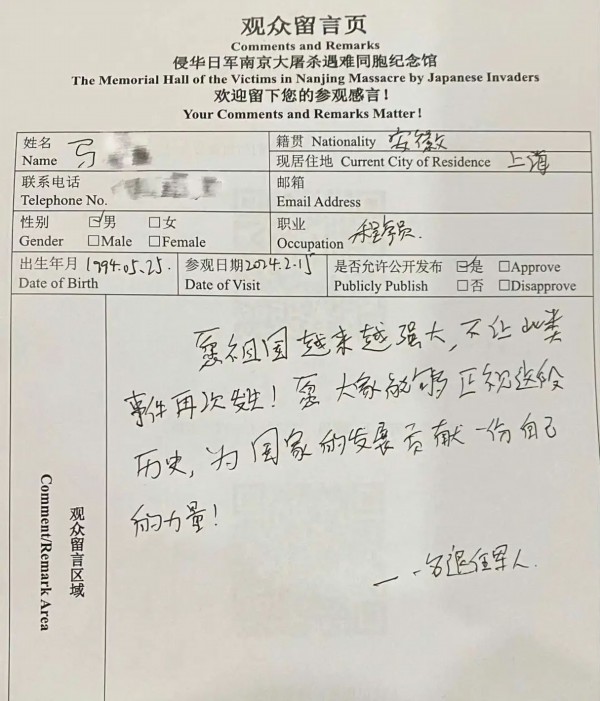 观众留言页
Comments and Remarks
侵华日军南京大屠杀遇难同胞纪念馆
The Memorial Hall of the Victims in Nanjing Massacre by Japanese Invaders
欢迎留下您的参观感言！
Your Comments and Remarks Matter!
姓名
Name
籍贯 Nationality 安徽
现居住地 Current City of Residence 上海
联系电话
Telephone No.
邮箱
Email Address
性别 ☑男 □女
Gender □Male □Female
职业
Occupation 程序员.
出生年月 1994.05.25.
Date of Birth
参观日期 2024.2.15
Date of Visit
是否允许公开发布 ☑是 □Approve
Publicly Publish □否 □Disapprove
观众留言区域
Comment/Remark Area
愿祖国越来越强大，不让此类
事件再次发生！愿大家能够正视这段
历史，为国家的发展贡献一份自己
的力量！
—一名退伍军人.